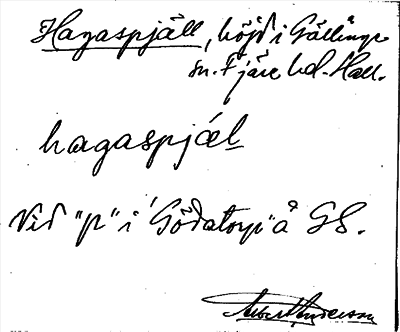 Hagaspjäll, höjd i Gällinge
sn. Fjäre hd. Hall.
hagaspjäl
Vid "p" i "Gödatorp" å GS.
Albert Anderson